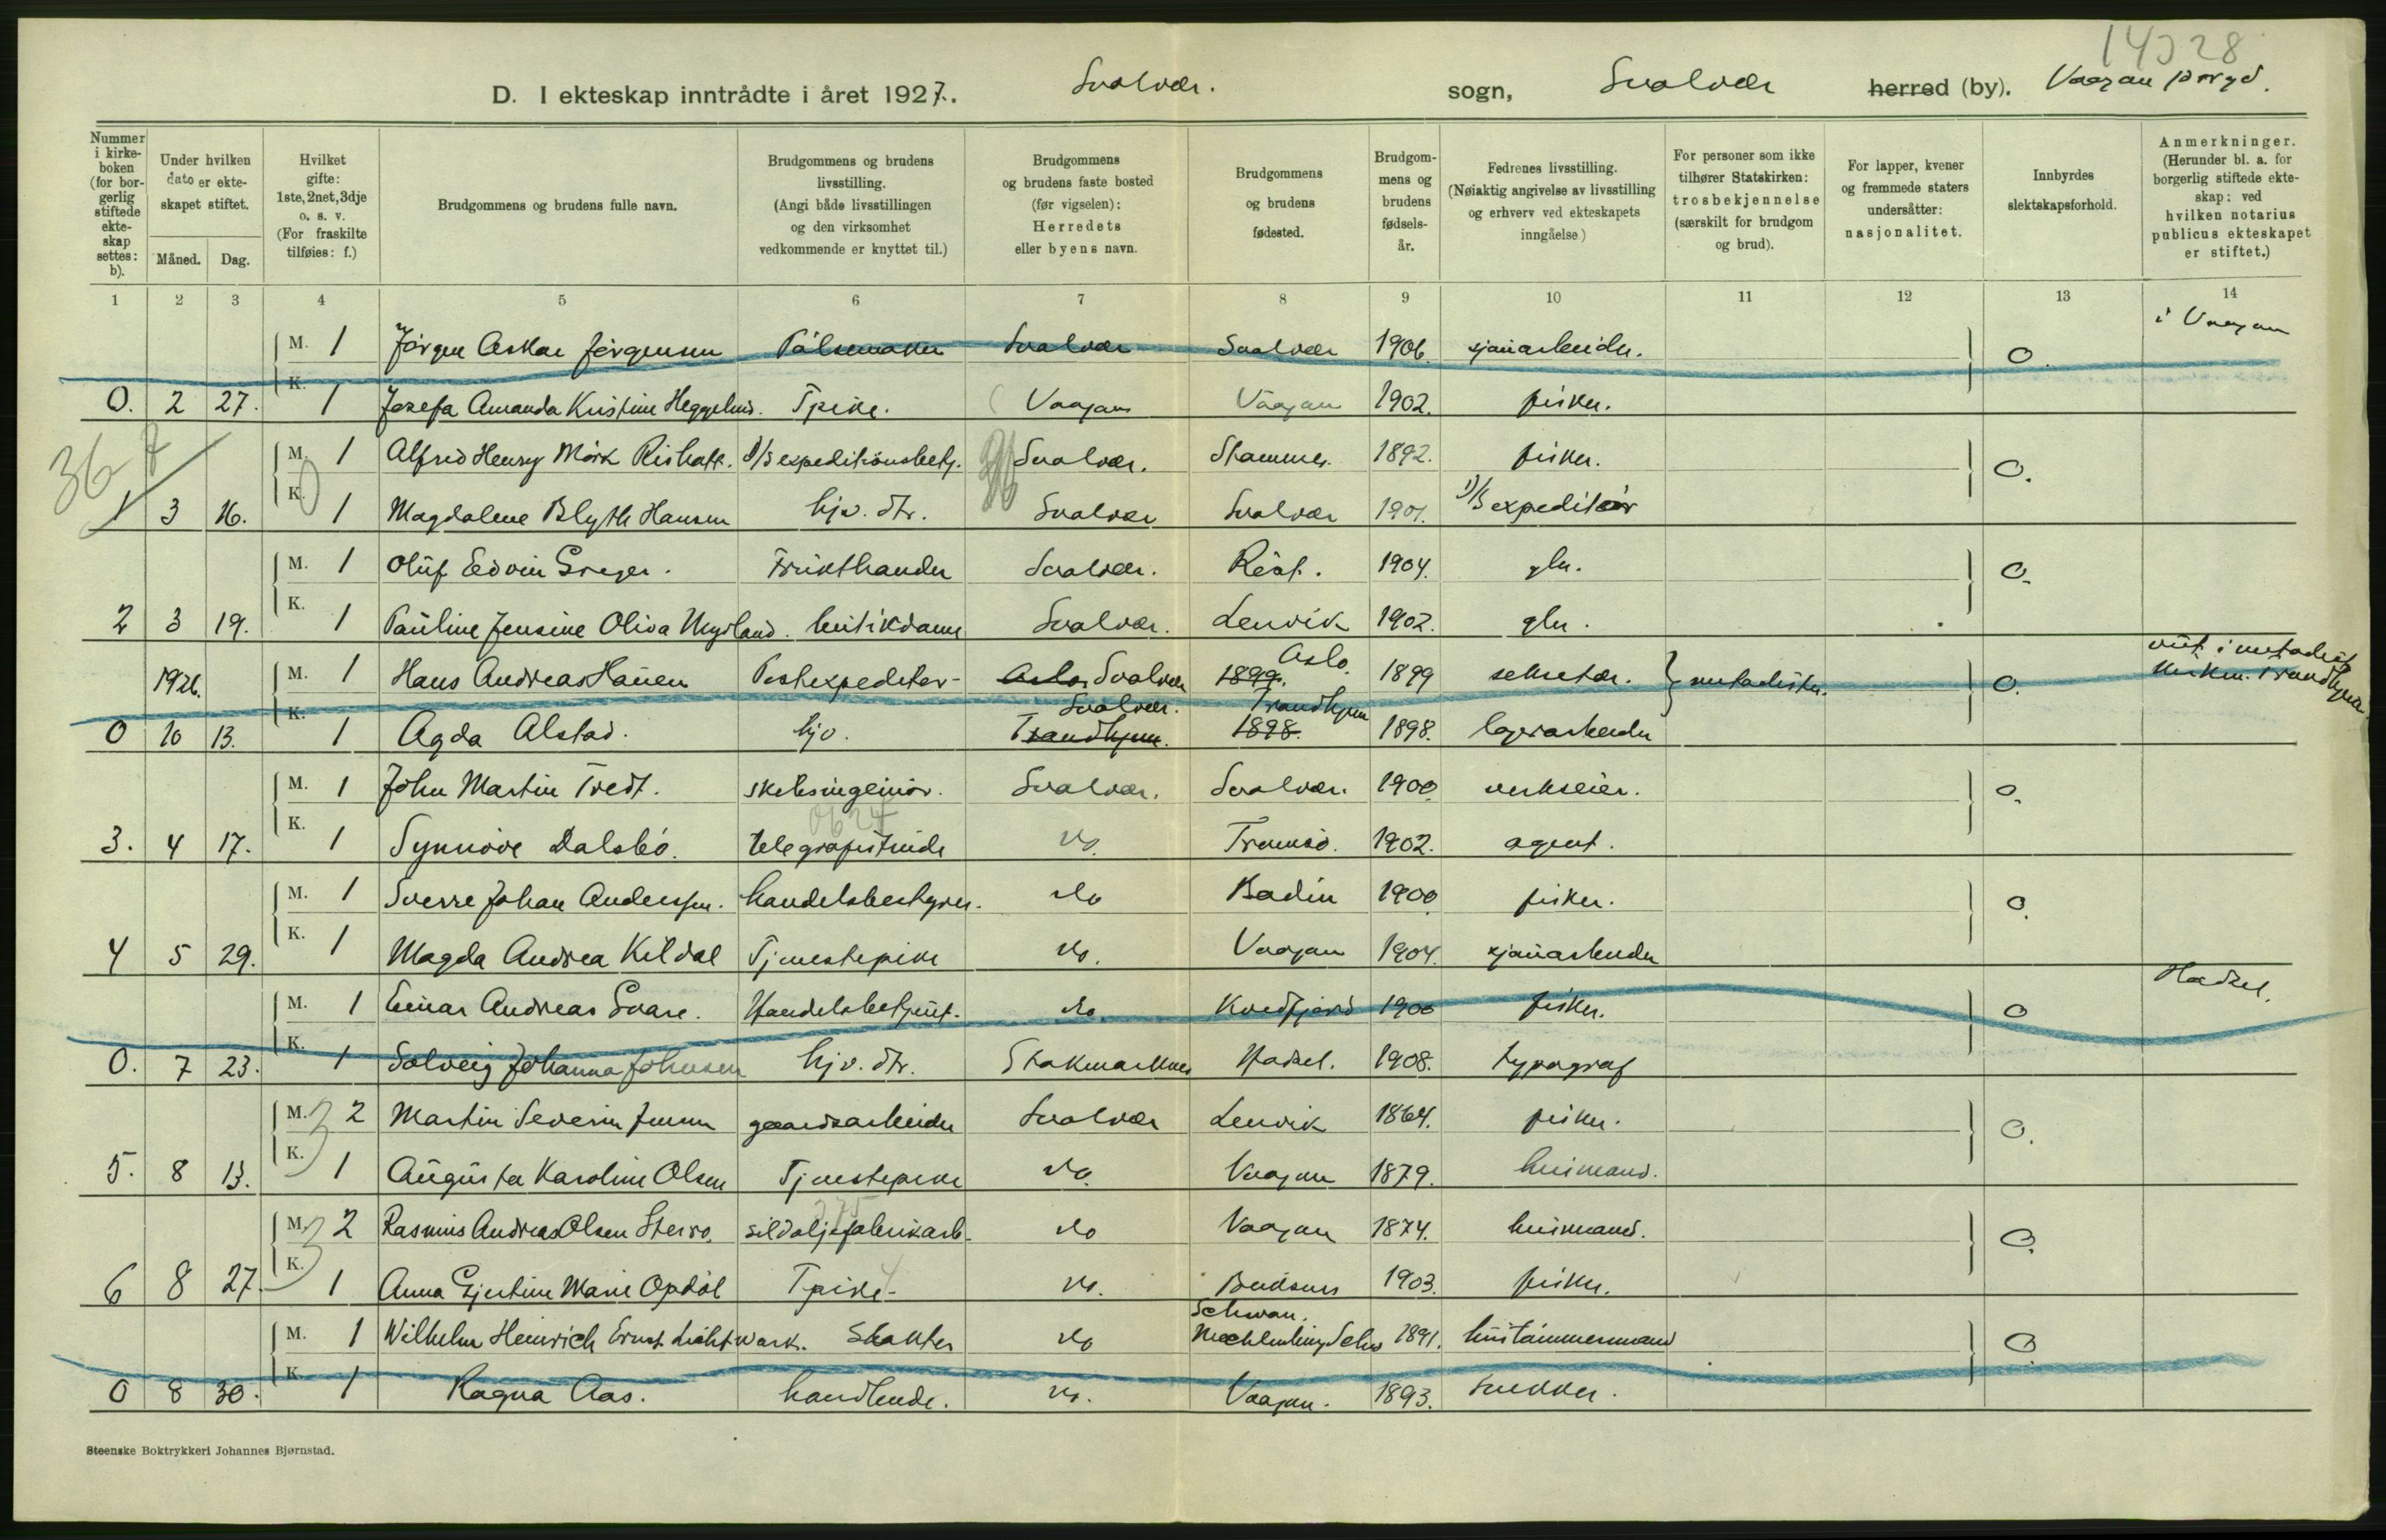 14328
D. I ekteskap inntrådte i året 1927. Svolvær. sogn, Svolvær herred (by). Vaagan prgd.
Nummer i kirkeboken (for borgerlig stiftede ekteskap settes: b).
Under hvilken dato er ekteskapet stiftet.
Måned. Dag.
Hvilket gifte: 1ste, 2net, 3dje o. s. v. (For fraskilte tilføies: f.)
Brudgommens og brudens fulle navn.
Brudgommens og brudens livsstilling. (Angi både livsstillingen og den virksomhet vedkommende er knyttet til.)
Brudgommens og brudens faste bosted (før vigselen): Herredets eller byens navn.
Brudgommens og brudens fødested.
Brudgommens og brudens fødselsår.
Fedrenes livsstilling. (Nøiaktig angivelse av livsstilling og erhverv ved ekteskapets inngåelse)
For personer som ikke tilhører Statskirken: trosbekjennelse (særskilt for brudgom og brud).
For lapper, kvener og fremmede staters undersåtter: nasjonalitet.
Innbyrdes slektskapsforhold.
Anmerkninger. (Herunder bl. a. for borgerlig stiftede ekteskap: ved hvilken notarius publicus ekteskapet er stiftet.)
1 2 3 4 5 6 7 8 9 10 11 12 13 14
M. 1 Jörgen Oskar Jörgensen Pölsemaker Svolvær Svolvær 1906. sjauarbeider. 0. i Vaagan
0. 2 27. K. 1 Josefa Amanda Kristine Heggelund. Tpike. Vaagan Vaagan 1902. fisker.
36
M. 1 Alfred Henry Mörk Rishaff. D/S expeditionsbetj. Svolvær. Stamnes. 1892. fisker. 0.
1 3 16. K. 1 Magdalene Blyth Hansen hjv. dtr. Svolvær Svolvær 1901. D/S expeditör
M. 1 Oluf Edvin Greger. Frukthandler Svolvær. Röst. 1904. glr. 0.
2 3 19. K. 1 Pauline Jensine Oliva Nygland. butikdame Svolvær. Lenvik 1902. glr.
1926. M. 1 Hans Andreas Hauen Postexpeditør Oslo Svolvær 1899. Oslo. 1899 sekretær. metodister. 0. viet i metodist kirken Trondhjem.
0 10 13. K. 1 Agda Alstad. hjv. Trondhjem. Svolvær. 1898. Trondhjem 1898. lagerarbeider
M. 1 John Martin Tredt. skibsingeniör. Svolvær. Svolvær. 1900. verkseier. 0.
3. 4 17. K. 1 Synnöve Dalsbö. telegrafistinde do. Tromsö. 1902. agent.
M. 1 Sverre Johan Anderssen. handelsbestyrer. do Bodin 1900 fisker. 0.
4 5 29. K. 1 Magda Andrea Kildal Tjenestepike do. Vaagan 1904. sjauarbeider
M. 1 Einar Andreas Svare. Handelsbetjent. do. Kvedfjord 1900 fisker. 0 Hadsel.
0. 7 23. K. 1 Solveig Johanna Johnsen hjv. dtr. Stokmarknes Hadsel. 1908. typograf
M. 2 Martin Severin Jensen gaardsarbeider Svolvær Lenvik 1864. fisker. 0.
5. 8 13. K. 1 Augusta Karoline Olsen Tjenestepike do. Vaagan 1879. husmand.
M. 2 Rasmus Andreas Olsen Storvo. sildoljefabrikarb. do Vaagan 1874. husmand. 0.
6 8 27. K. 1 Anna Gjertine Marie Opdöl Tpike. do. Buksnes 1903. fisker.
M. 1 Wilhelm Heinrich Ernst Lichtwark. Slakter do Schwan, Mechlenburg Schw 1891. hustömmermand 0.
0 8 30. K. 1 Ragna Aas. handlende. do. Vaagan. 1893. Snekker.
Steenske Boktrykkeri Johannes Bjørnstad.